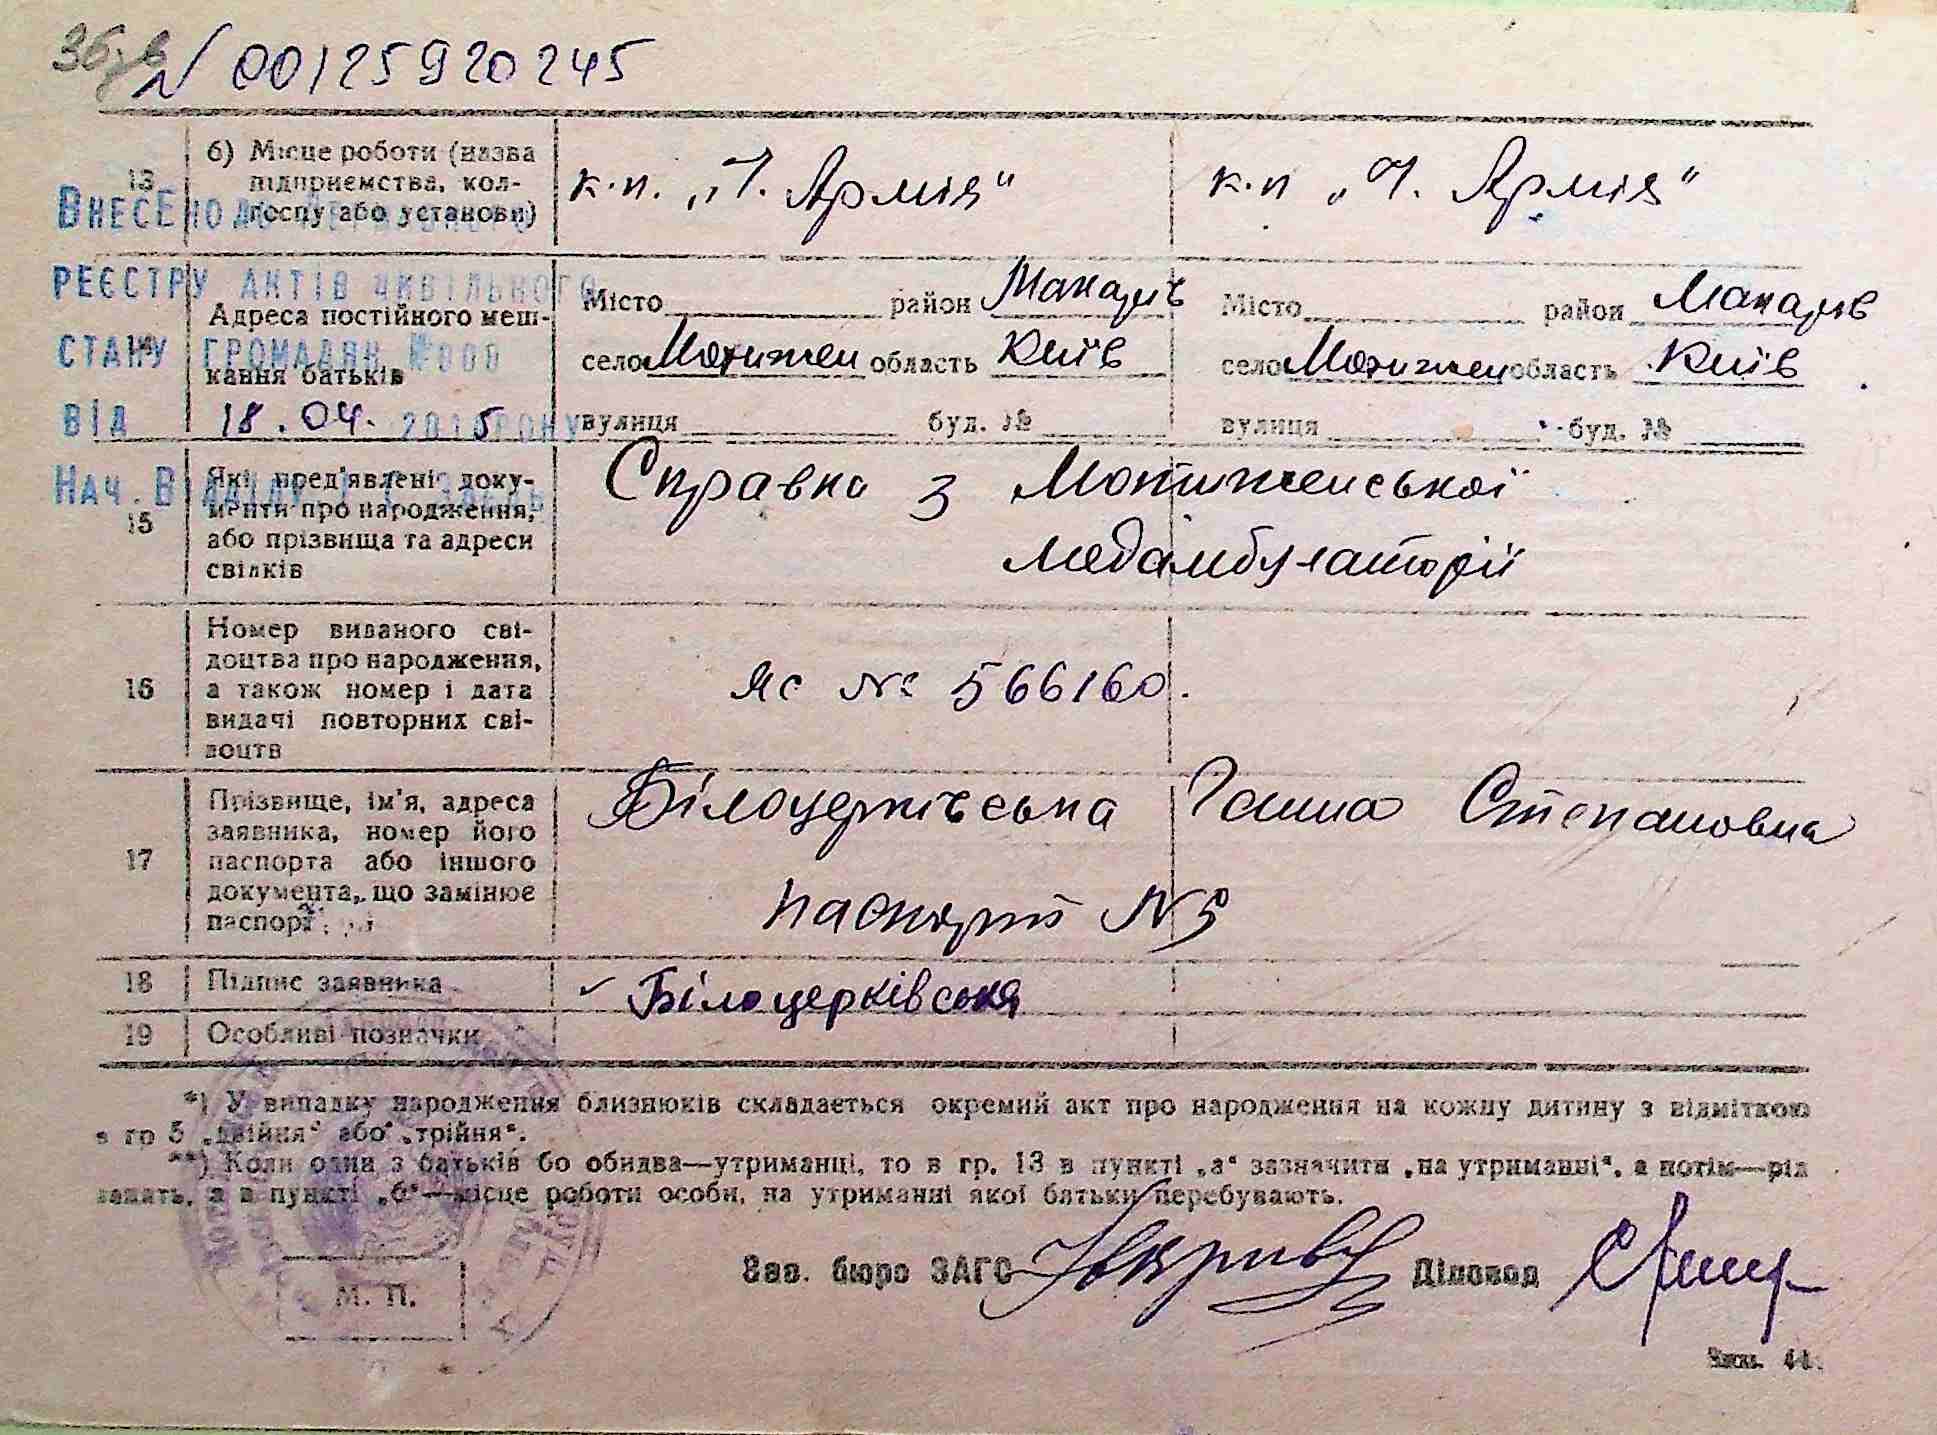 N 00125920245
13
б) Місце роботи (назва
підприємства, кол-
госпу або установи)
к.п. „Ч. Армія"
к.п „Ч. Армія"
ВНЕСЕНО ДО ДЕРЖАВНОГО
РЕЄСТРУ АКТІВ ЦИВІЛЬНОГО
СТАНУ ГРОМАДЯН №000
ВІД 18.04. 2015 РОКУ
НАЧ. ВІДДІЛУ
Адреса постійного меш-
кання батьків
Місто район Макарів
село Мотижин область Київ
вулиця буд. №
Місто район Макарів
село Мотижин область Київ
вулиця буд. №
15
Які пред'явлені доку-
менти про народження,
або прізвища та адреси
свідків
Справка з Мотиженської
медамбулаторії
16
Номер виданого сві-
доцтва про народження,
а також номер і дата
видачі повторних сві-
доцтв
ЯС № 566160.
17
Прізвище, ім'я, адреса
заявника, номер його
паспорта або іншого
документа, що замінює
паспорт
Білоцерківська Ганна Степановна
паспорт № 5
18
Підпис заявника
Білоцерківська
19
Особливі позначки
*) У випадку народження близнюків складається окремий акт про народження на кожну дитину з відміткою
в гр 5 „двійня" або „трійня".
**) Коли один з батьків бо обидва—утриманці, то в гр. 13 в пункті „а" зазначити „на утриманні", а потім—рід
занять, а в пункті „б"—місце роботи особи, на утриманні якої батьки перебувають.
М. П.
Зав. бюро ЗАГС
Діловод